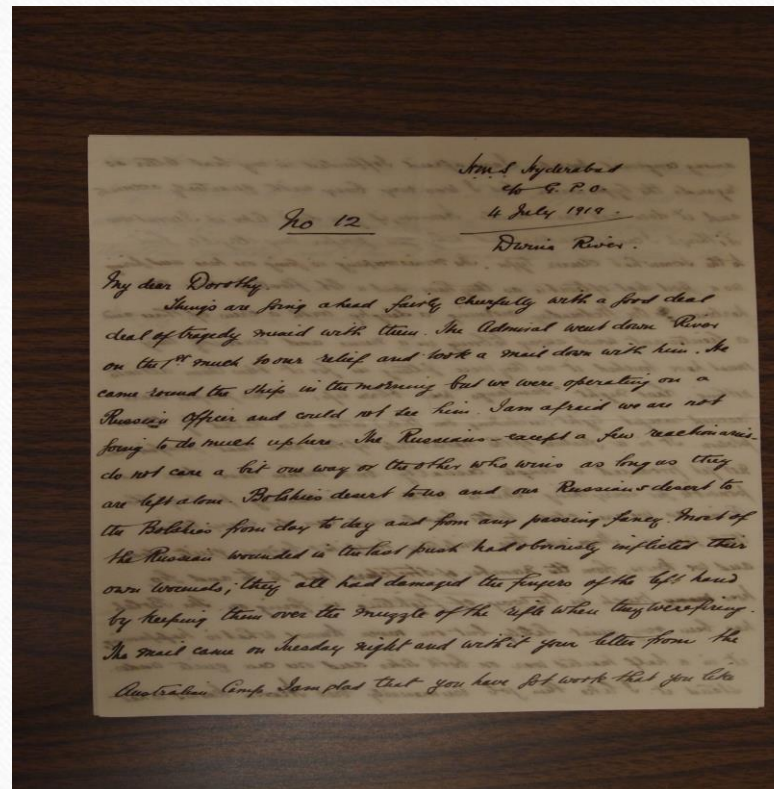 H.M.S Hyderabad
c/o G.P.O.
No 12
4 July 1919.
Dwina River.
My dear Dorothy.
Things are going ahead fairly cheerfully with a good deal
deal of tragedy mixed with them. The Admiral went down River
on the 1st much to our relief and took a mail down with him. He
came round the ship in the morning but we were operating on a
Russian Officer and could not see him. I am afraid we are not
going to do much up here. The Russians - except a few reactionaries -
do not care a bit one way or the other who wins as long as they
are left alone. Bolshies desert to us and our Russians desert to
the Bolshies from day to day and from any passing fancy. Most of
the Russian wounded in the last push had obviously inflicted their
own wounds; they all had damaged the fingers of the left hand
by keeping them over the muzzle of the rifle when they were firing.
The mail came on Tuesday night and with it your letter from the
Australian Camp. I am glad that you have got work that you like